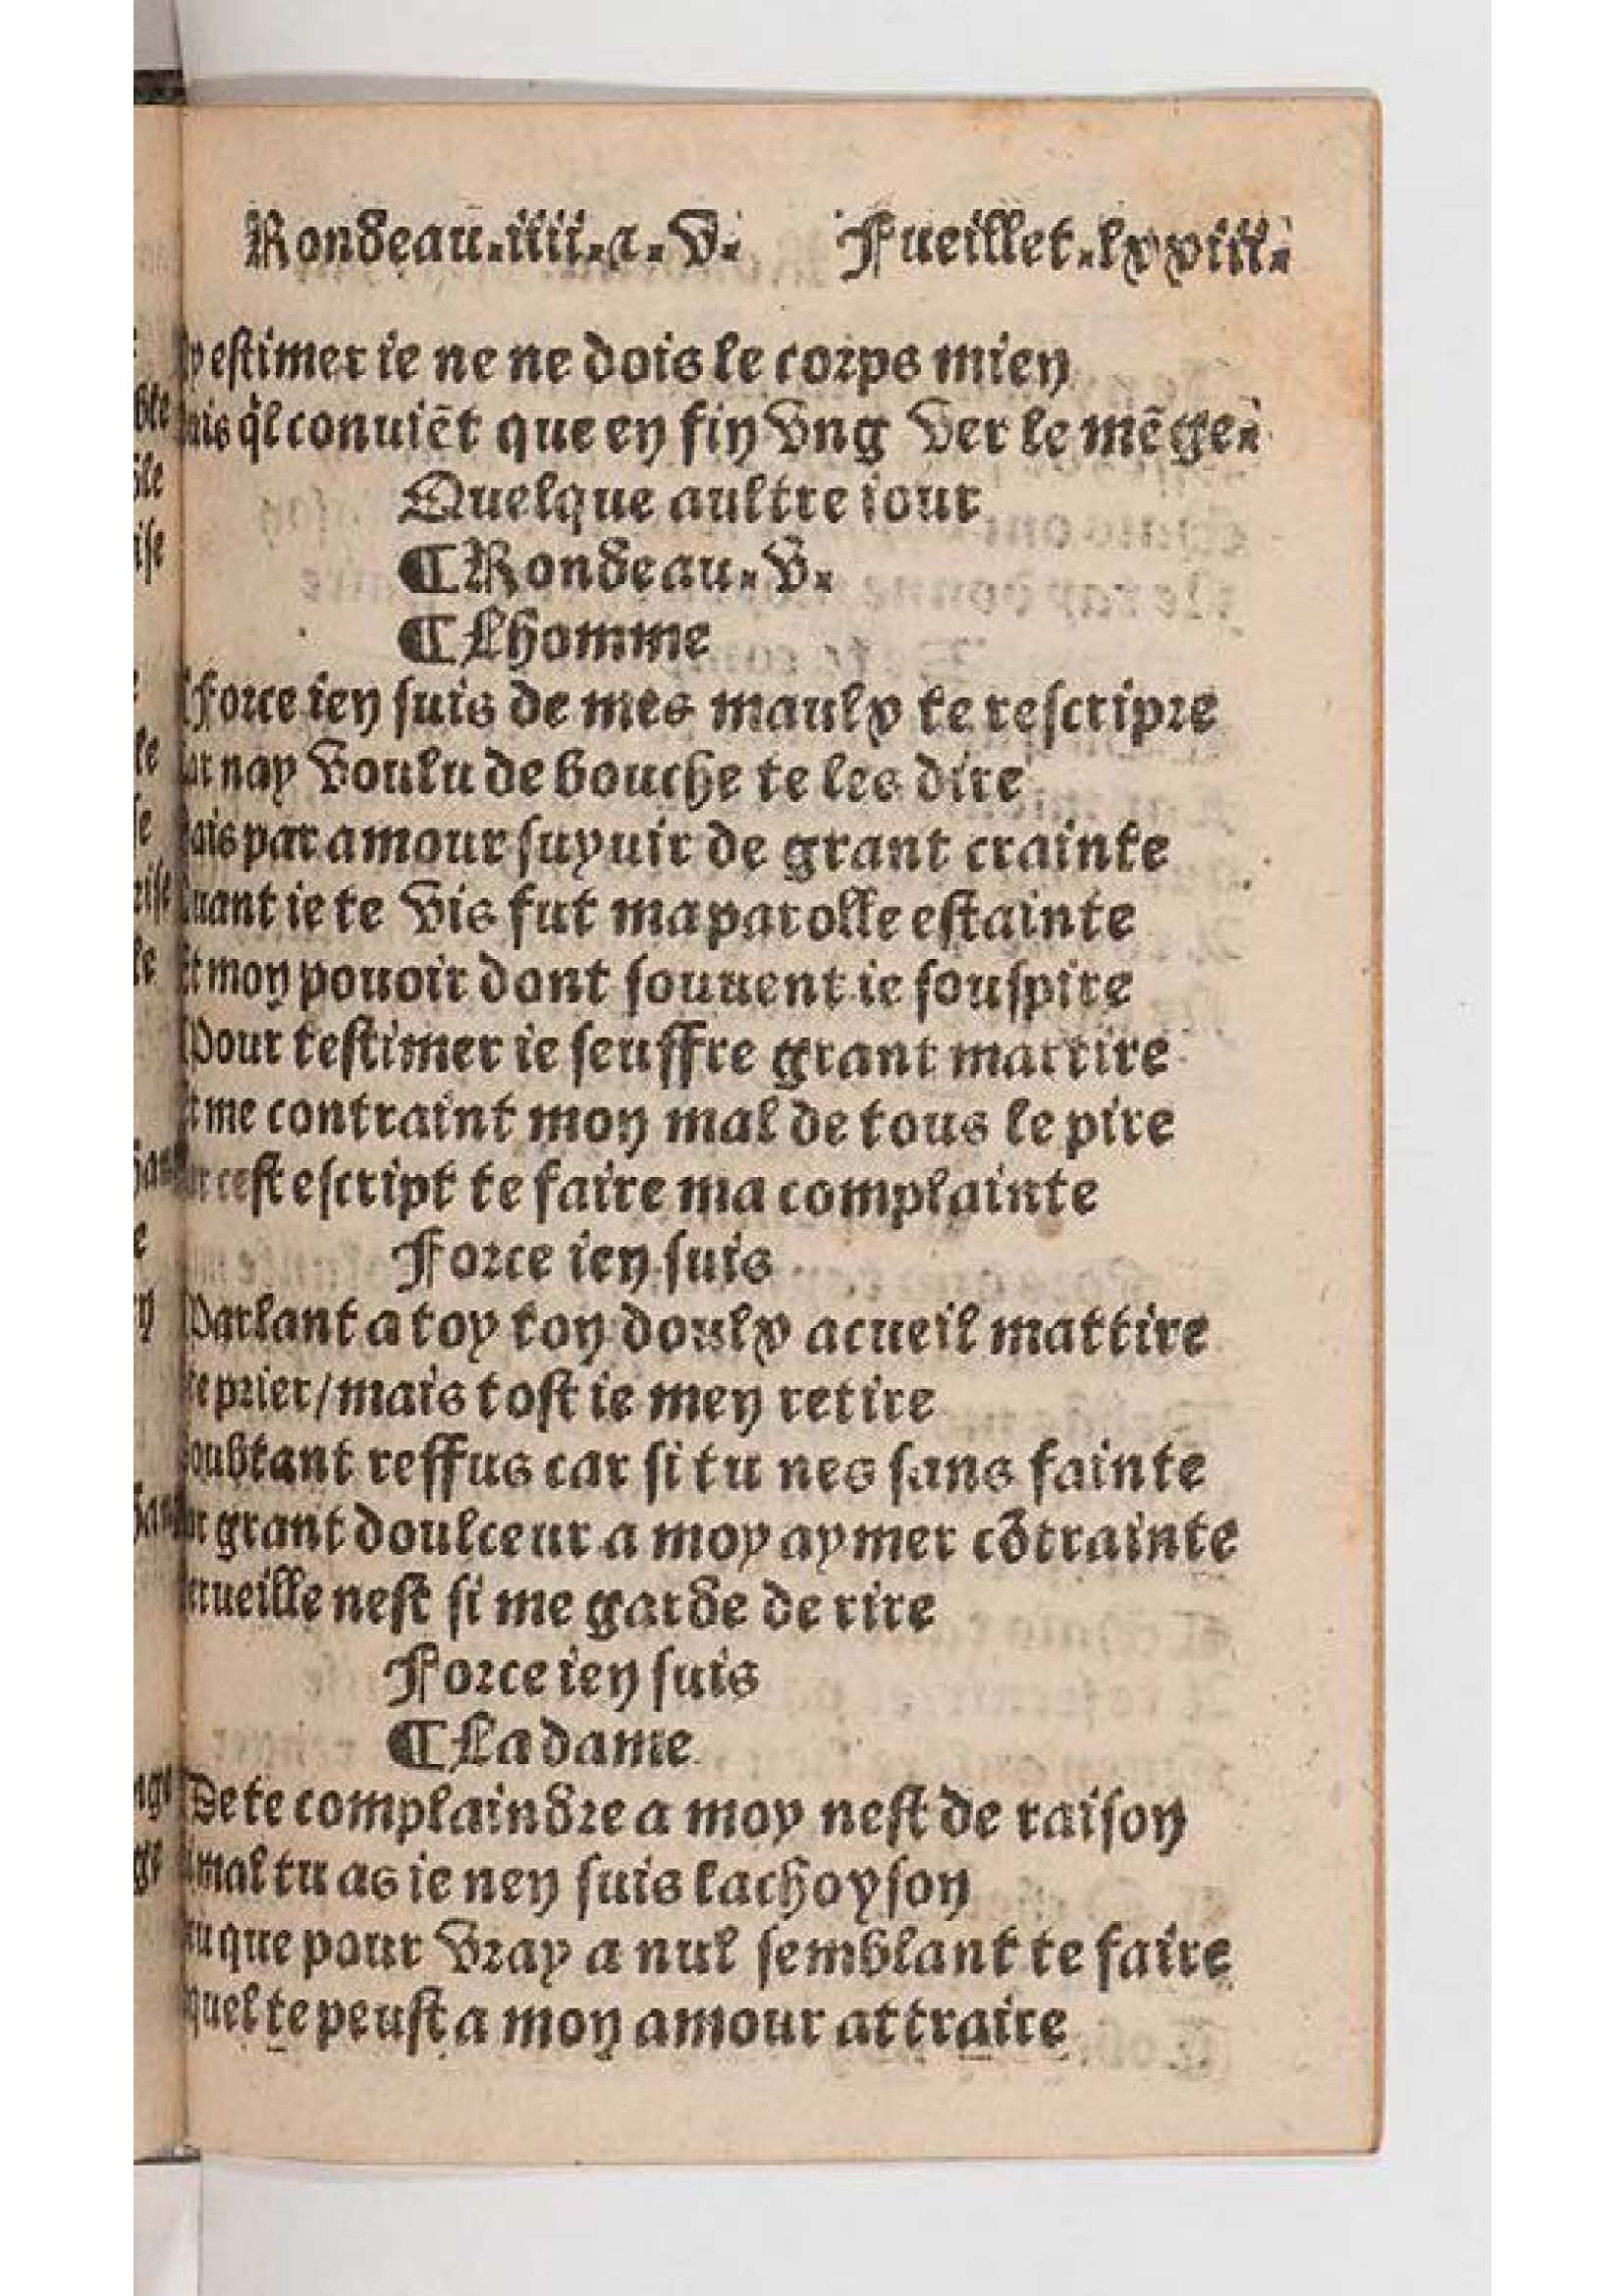 Rondeau.iiii.a.v. Fueillet.lxxiii.
estimer ie ne ne dois le corps mien
q̃l conuiẽt que en fin vng ver le mẽge.
Quelque aultre iour
¶Rondeau.v.
¶Lhomme
Force ien suis de mes maulx te rescripre
nay voulu de bouche te les dire
par amour suyuir de grant crainte
ie te vis fut ma parolle estainte
mon pouoir dont souuent ie souspire
Pour testimer ie seuffre grant martire
me contraint mon mal de tous le pire
cest escript te faire ma complainte
Force ien suis
Parlant a toy ton doulx acueil mattire
prier/mais tost ie men retire
reffus car si tu nes sans fainte
grant doulceur a moy aymer cõtrainte
nest si me garde de rire
Force ien suis
¶La dame
De te complaindre a moy nest de raison
mal tu as ie nen suis lachoyson
que pour vray a nul semblant te faire
te peust a mon amour attraire